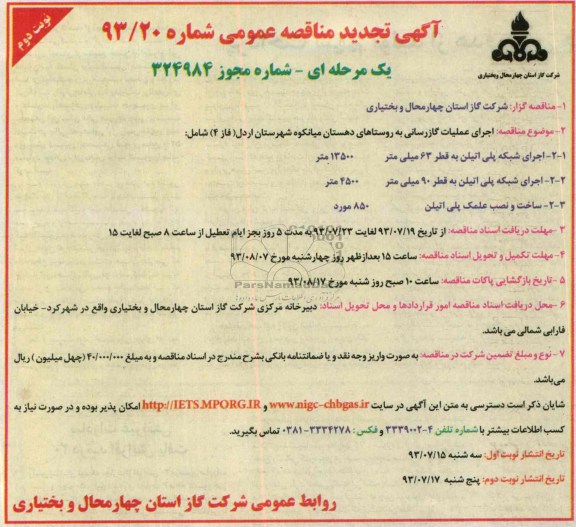 نوبت دوم
آگهی تجدید مناقصه عمومی شماره ۹۳/۲۰
یک مرحله ای - شماره مجوز ۳۲۴۹۸۴
شرکت گاز استان چهارمحال وبختیاری
۱- مناقصه گزار: شرکت گاز استان چهارمحال و بختیاری
۲- موضوع مناقصه: اجرای عملیات گازرسانی به روستاهای دهستان میانکوه شهرستان اردل( فاز ۴) شامل:
۲-۱- اجرای شبکه پلی اتیلن به قطر ۶۳ میلی متر ۱۳۵۰۰ متر
۲-۲- اجرای شبکه پلی اتیلن به قطر ۹۰ میلی متر ۴۵۰۰ متر
۲-۳- ساخت و نصب علمک پلی اتیلن ۸۵۰ مورد
۳- مهلت دریافت اسناد مناقصه: از تاریخ ۹۳/۰۷/۱۹ لغایت ۹۳/۰۷/۲۳ به مدت ۵ روز بجز ایام تعطیل از ساعت ۸ صبح لغایت ۱۵
۴- مهلت تکمیل و تحویل اسناد مناقصه: ساعت ۱۵ بعدازظهر روز چهارشنبه مورخ ۹۳/۰۸/۰۷
۵- تاریخ بازگشایی پاکات مناقصه: ساعت ۱۰ صبح روز شنبه مورخ ۹۳/۰۸/۱۷
۶- محل دریافت اسناد مناقصه امور قراردادها و محل تحویل اسناد: دبیرخانه مرکزی شرکت گاز استان چهارمحال و بختیاری واقع در شهرکرد- خیابان
فارابی شمالی می باشد.
۷- نوع و مبلغ تضمین شرکت در مناقصه: به صورت واریز وجه نقد و یا ضمانتنامه بانکی بشرح مندرج در اسناد مناقصه و به مبلغ ۴۰/۰۰۰/۰۰۰ (چهل میلیون ) ریال
می‌باشد.
شایان ذکر است دسترسی به متن این آگهی در سایت www.nigc-chbgas.ir و http://IETS.MPORG.IR امکان پذیر بوده و در صورت نیاز به
کسب اطلاعات بیشتر با شماره تلفن ۴-۳۳۳۹۰۰۲ و فکس : ۳۳۳۴۲۷۸-۰۳۸۱ تماس بگیرید.
تاریخ انتشار نوبت اول: سه شنبه ۹۳/۰۷/۱۵
تاریخ انتشار نوبت دوم: پنج شنبه ۹۳/۰۷/۱۷
روابط عمومی شرکت گاز استان چهارمحال و بختیاری